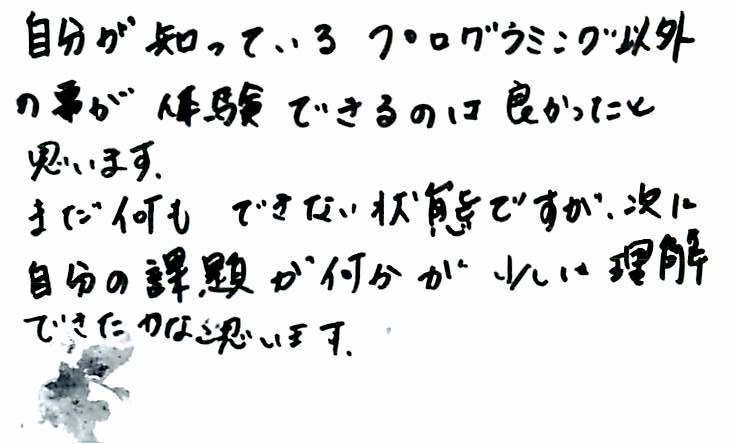 自分が知っているプログラミング以外
の事が体験できるのは良かったと
思います。
まだ何もできない状態ですが、次に
自分の課題が何分が少しは理解
できたかなと思います。